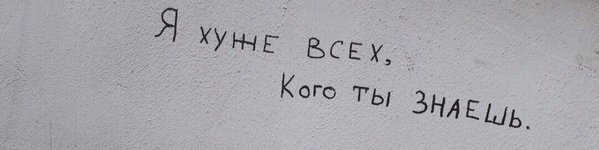 Я хуже всех,
Кого ты знаешь.